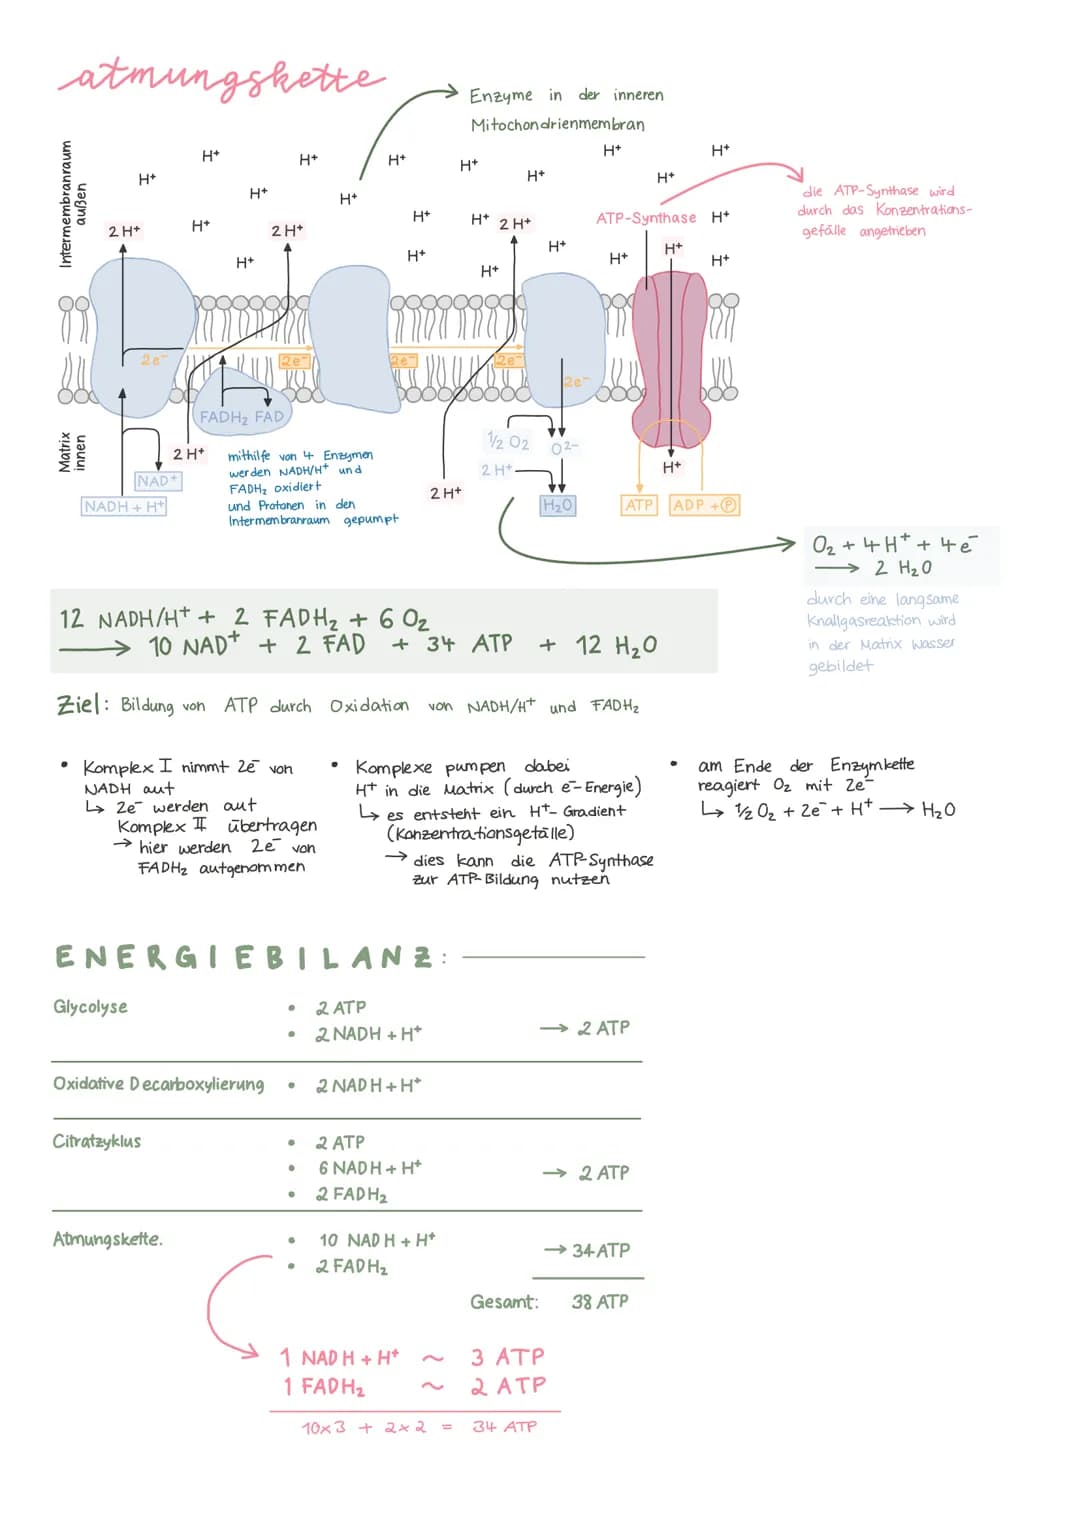 atmungskette
Enzyme in der inneren
Mitochondrienmembran
Intermembranraum
außen
H⁺
H⁺
H⁺
H⁺
H⁺
H⁺
H⁺
H⁺
H⁺
H⁺
H⁺
die ATP-Synthase wird
durch das Konzentrations-
gefälle angetrieben
2 H⁺
H⁺
2 H⁺
H⁺
H⁺
2 H⁺
ATP-Synthase
H⁺
H⁺
H⁺
H⁺
H⁺
H⁺
H⁺
H⁺
2e⁻
2e⁻
2e⁻
2e⁻
2e⁻
FADH₂ FAD
Matrix
innen
2 H⁺
NAD⁺
NADH + H⁺
mithilfe von 4 Enzymen
werden NADH/H⁺ und
FADH₂ oxidiert
und Protonen in den
Intermembranraum gepumpt
2 H⁺
½ O₂
O²⁻
2 H⁺
H₂O
H⁺
ATP
ADP + P
O₂ + 4H⁺ + 4e⁻
⟶ 2 H₂O
durch eine langsame
Knallgasreaktion wird
in der Matrix Wasser
gebildet
12 NADH/H⁺ + 2 FADH₂ + 6 O₂
⟶ 10 NAD⁺ + 2 FAD + 34 ATP + 12 H₂O
Ziel: Bildung von ATP durch Oxidation von NADH/H⁺ und FADH₂
• Komplex I nimmt 2e⁻ von
NADH auf
↳ 2e⁻ werden auf
Komplex II übertragen
→ hier werden 2e⁻ von
FADH₂ aufgenommen
• Komplexe pumpen dabei
H⁺ in die Matrix (durch e⁻-Energie)
↳ es entsteht ein H⁺-Gradient
(Konzentrationsgefälle)
→ dies kann die ATP-Synthase
zur ATP-Bildung nutzen
• am Ende der Enzymkette
reagiert O₂ mit 2e⁻
↳ ½ O₂ + 2e⁻ + H⁺ ⟶ H₂O
ENERGIEBILANZ:
Glycolyse
• 2 ATP
• 2 NADH + H⁺
→ 2 ATP
Oxidative Decarboxylierung
• 2 NADH + H⁺
Citratzyklus
• 2 ATP
• 6 NADH + H⁺
• 2 FADH₂
→ 2 ATP
Atmungskette.
• 10 NADH + H⁺
• 2 FADH₂
→ 34 ATP
Gesamt: 38 ATP
1 NADH + H⁺ ~ 3 ATP
1 FADH₂ ~ 2 ATP
10×3 + 2×2 = 34 ATP